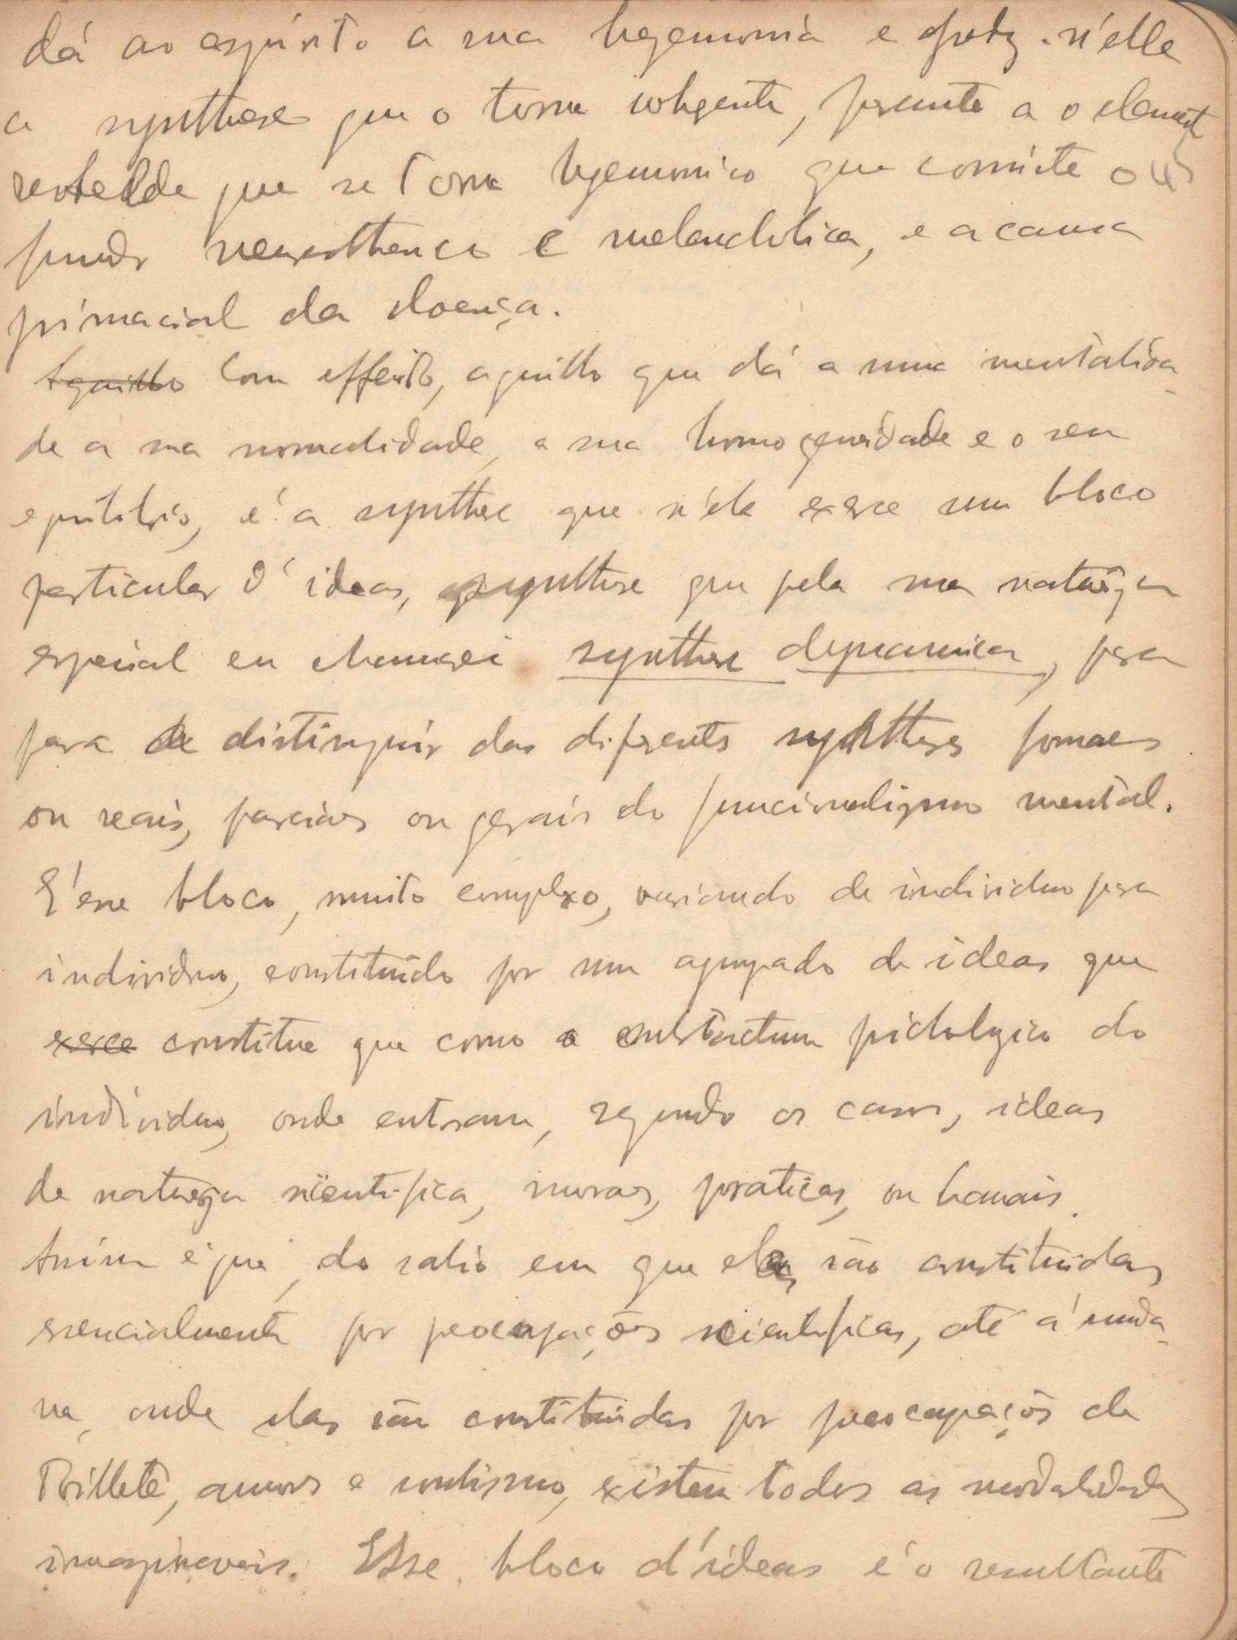 dá ao espirito a sua hegemonia e n'elle
a synthese que o torna cohgente, perante a o element
rebelde que se torna hgemonico que consiste o
fundo neurasthenco e melancholica, e a causa
primacial da doença.
Aquillo Com effeito, aquillo que dá a uma mentalida
de a sua normalidade, a sua homogeneidade e o seu
equilibrio, é a synthese que n'ela exerce um bloco
particular d'ideas, synthese que pela sua natureza
especial eu chamarei synthese dynamica, para
para a distinguir das diferentes syntheses formaes
ou reais, parciaes ou gerais do funcionalismo mental.
E' esse bloco, muito complexo, variando de individuo para
individuo, constituido por um agrupado de ideas que
exerce constitue que como o substractum psichologico do
individuo, onde entram, segundo os casos, ideas
de natureza scientifica, moraes, praticas, ou banais.
Assim é que, do sabio em que elas são constituidas
essencialmente por preocupações scientificas, até á munda
na, onde elas são constituidas por preocupações de
toillete, amores e existem todas as modalidades
imaginaveis. Esse bloco d'ideas é o resultante